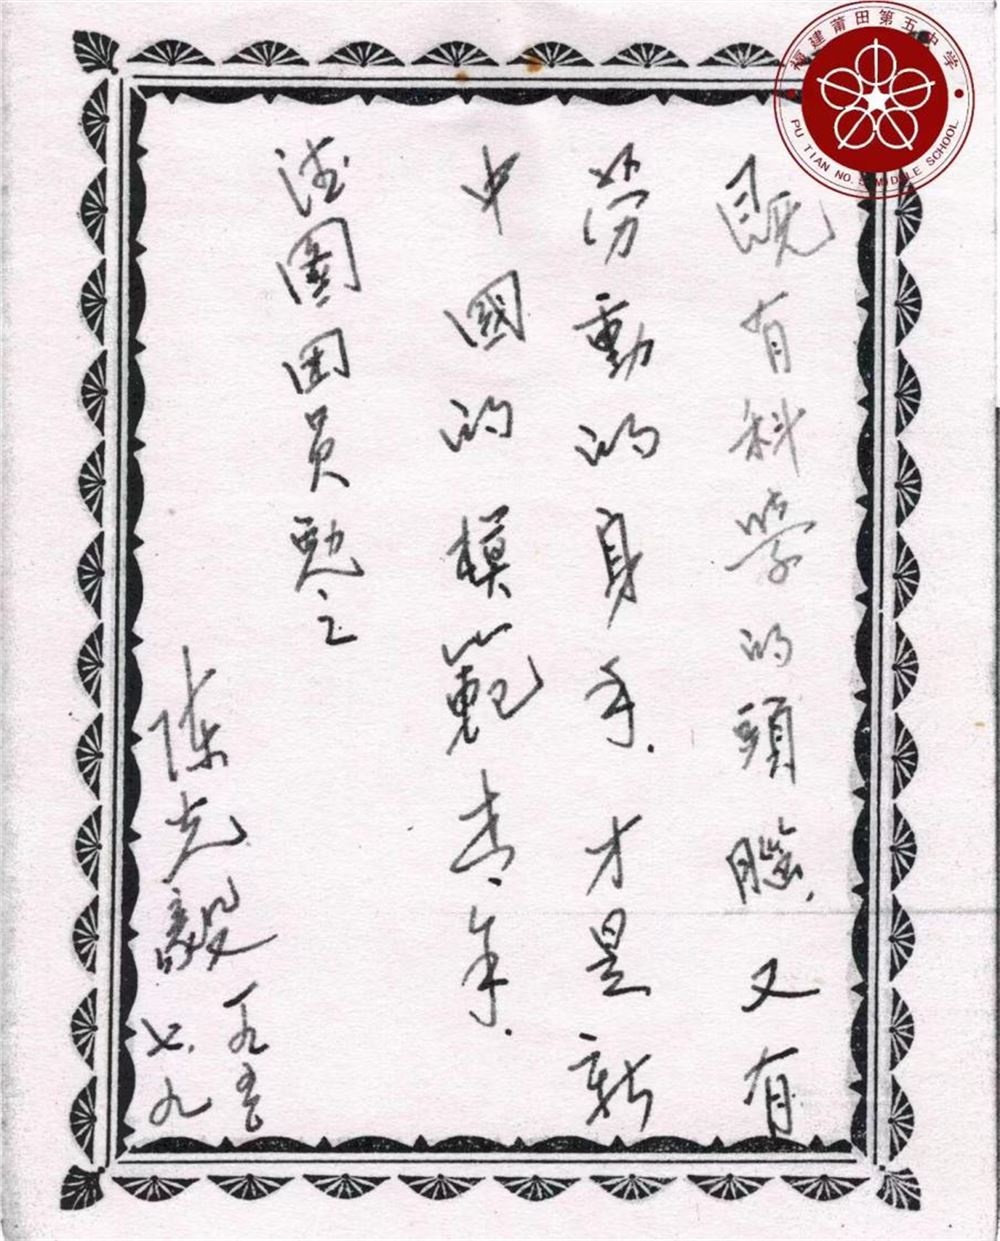 福建莆田第五中学
PU TIAN NO.5 MIDDLE SCHOOL
既有科學的頭腦,又有
勞動的身手.才是新
中國的模範青年.
团員勉之
陳光毅 一九五〇
七.九